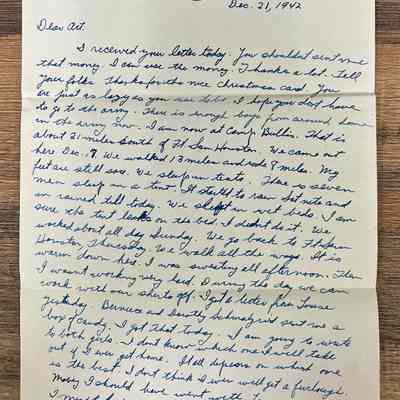 Dec. 21, 1942
Dear Art.
I received your letter today. You shouldn't sent me
that money. I can use the money. Thanks a lot. Tell
your folks thanks for the nice Christmas card. You
are just as lazy as you use to be. I hope you don't have
to go to the army. There is enough boys from around home
in the army now. I am now at Camp Bullis. That is
about 21 miles south of Ft Sam Houston. We came out
here Dec. 9. We walked 13 miles and rode 8 miles. My
feet are still sore. We sleep in tents. There is seven
men sleep in a tent. It started to rain Sat nite and
it rained till today. We slept in wet beds. I am
sure the tent leaks on the bed. I didn't do it. We
worked about all day Sunday. We go back to Ft Sam
Houston Thursday. We walk all the ways. It is
warm down here. I was sweating all afternoon. Then
I wasn't working very hard. During the day we can
work with our shirts off. I got a letter from Louise
yesterday. Bernice and Dorothy sent me a
box of candy. I got that today. I am going to write
to both girls. I don't know which one I will take
out if I ever get home. It all depends on which one
is the best. I don't think I ever will get a furlough.
I should have went
I must